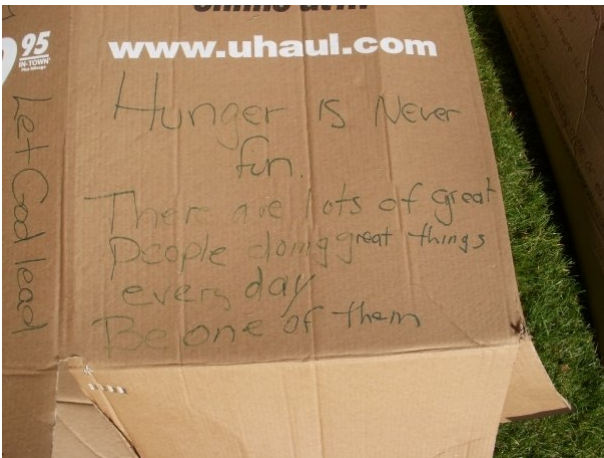 www.uhaul.com
95
IN-TOWN
Plus Mileage
Let God lead
Hunger is Never
fun.
There are lots of great
People doing great things
every day
Be one of them